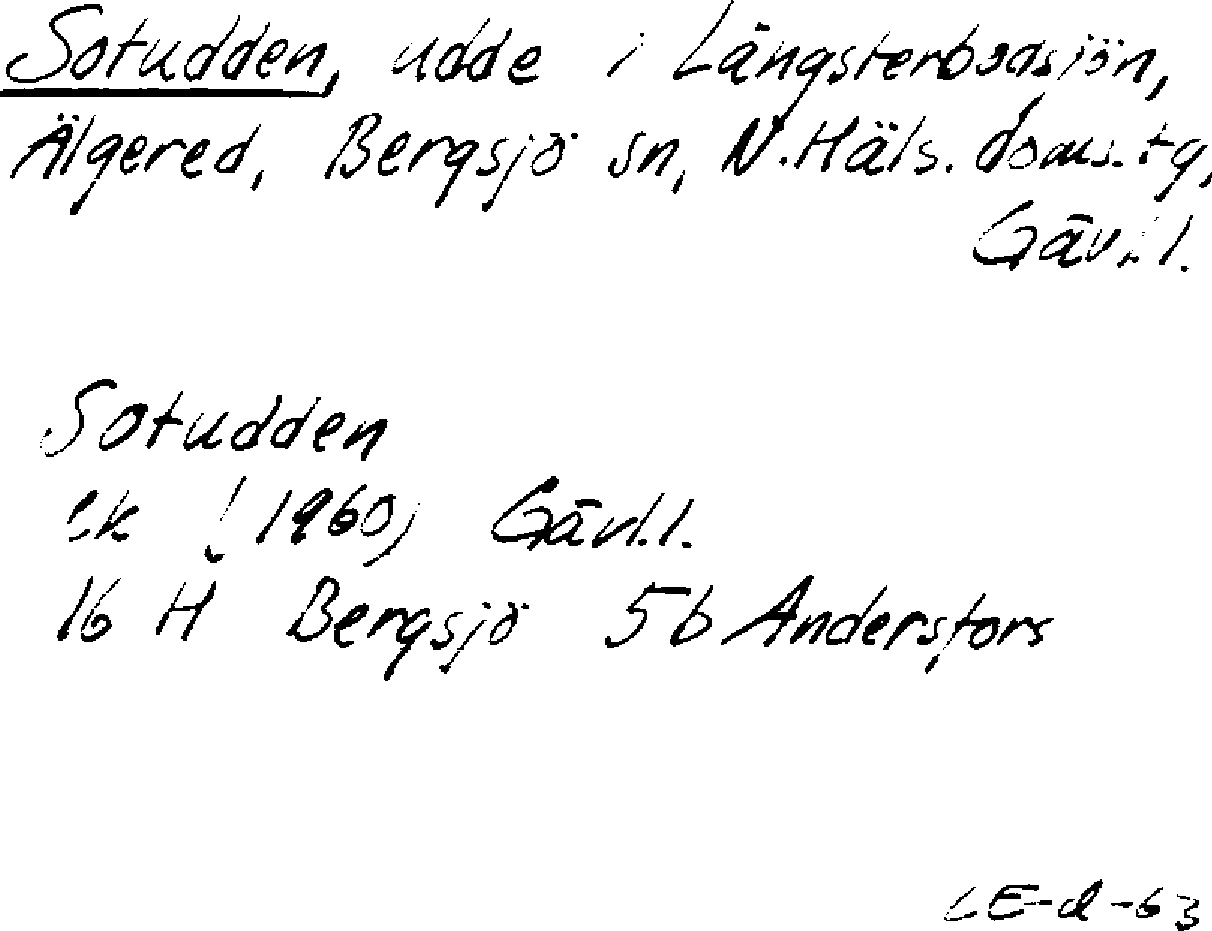 Sotudden, udde i Långsterbodsjön,
Älgered, Bergsjö sn, N. Häls. doms. tg,
Gävl. l.
Sotudden
ek ! 1960, Gävl. l.
16 H Bergsjö 5b Andersfors
LE-d-63